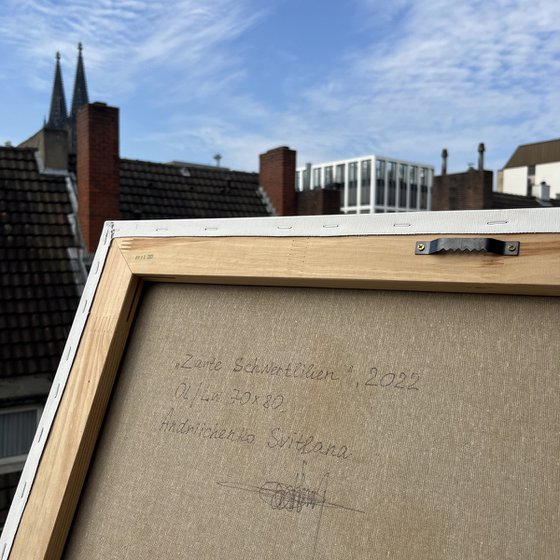 „Zarte Schwertlilien", 2022
Öl/Lw 70x80,
Andriichenko Svitlana